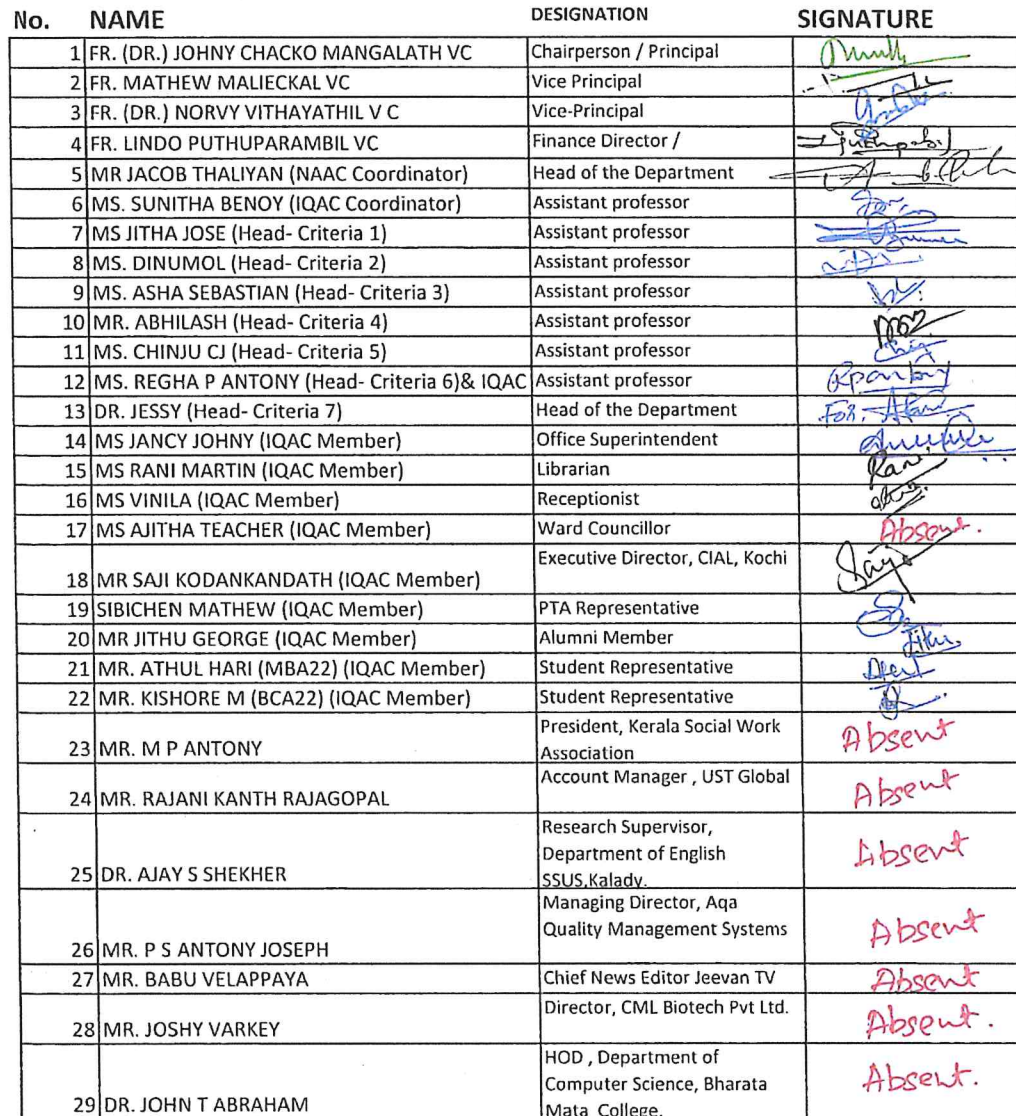 No. NAME DESIGNATION SIGNATURE
1 FR. (DR.) JOHNY CHACKO MANGALATH VC Chairperson / Principal
2 FR. MATHEW MALIECKAL VC Vice Principal
3 FR. (DR.) NORVY VITHAYATHIL V C Vice-Principal
4 FR. LINDO PUTHUPARAMBIL VC Finance Director /
5 MR JACOB THALIYAN (NAAC Coordinator) Head of the Department
6 MS. SUNITHA BENOY (IQAC Coordinator) Assistant professor
7 MS JITHA JOSE (Head- Criteria 1) Assistant professor
8 MS. DINUMOL (Head- Criteria 2) Assistant professor
9 MS. ASHA SEBASTIAN (Head- Criteria 3) Assistant professor
10 MR. ABHILASH (Head- Criteria 4) Assistant professor
11 MS. CHINJU CJ (Head- Criteria 5) Assistant professor
12 MS. REGHA P ANTONY (Head- Criteria 6)& IQAC Assistant professor Rpantony
13 DR. JESSY (Head- Criteria 7) Head of the Department For.
14 MS JANCY JOHNY (IQAC Member) Office Superintendent
15 MS RANI MARTIN (IQAC Member) Librarian Rani
16 MS VINILA (IQAC Member) Receptionist
17 MS AJITHA TEACHER (IQAC Member) Ward Councillor Absent.
Executive Director, CIAL, Kochi
18 MR SAJI KODANKANDATH (IQAC Member) Saij
19 SIBICHEN MATHEW (IQAC Member) PTA Representative
20 MR JITHU GEORGE (IQAC Member) Alumni Member
21 MR. ATHUL HARI (MBA22) (IQAC Member) Student Representative
22 MR. KISHORE M (BCA22) (IQAC Member) Student Representative
President, Kerala Social Work
23 MR. M P ANTONY Association Absent
Account Manager , UST Global
24 MR. RAJANI KANTH RAJAGOPAL Absent
Research Supervisor,
Department of English
25 DR. AJAY S SHEKHER SSUS,Kalady. Absent
Managing Director, Aqa
Quality Management Systems
26 MR. P S ANTONY JOSEPH Absent
27 MR. BABU VELAPPAYA Chief News Editor Jeevan TV Absent
Director, CML Biotech Pvt Ltd.
28 MR. JOSHY VARKEY Absent.
HOD , Department of
Computer Science, Bharata
29 DR. JOHN T ABRAHAM Mata College. Absent.